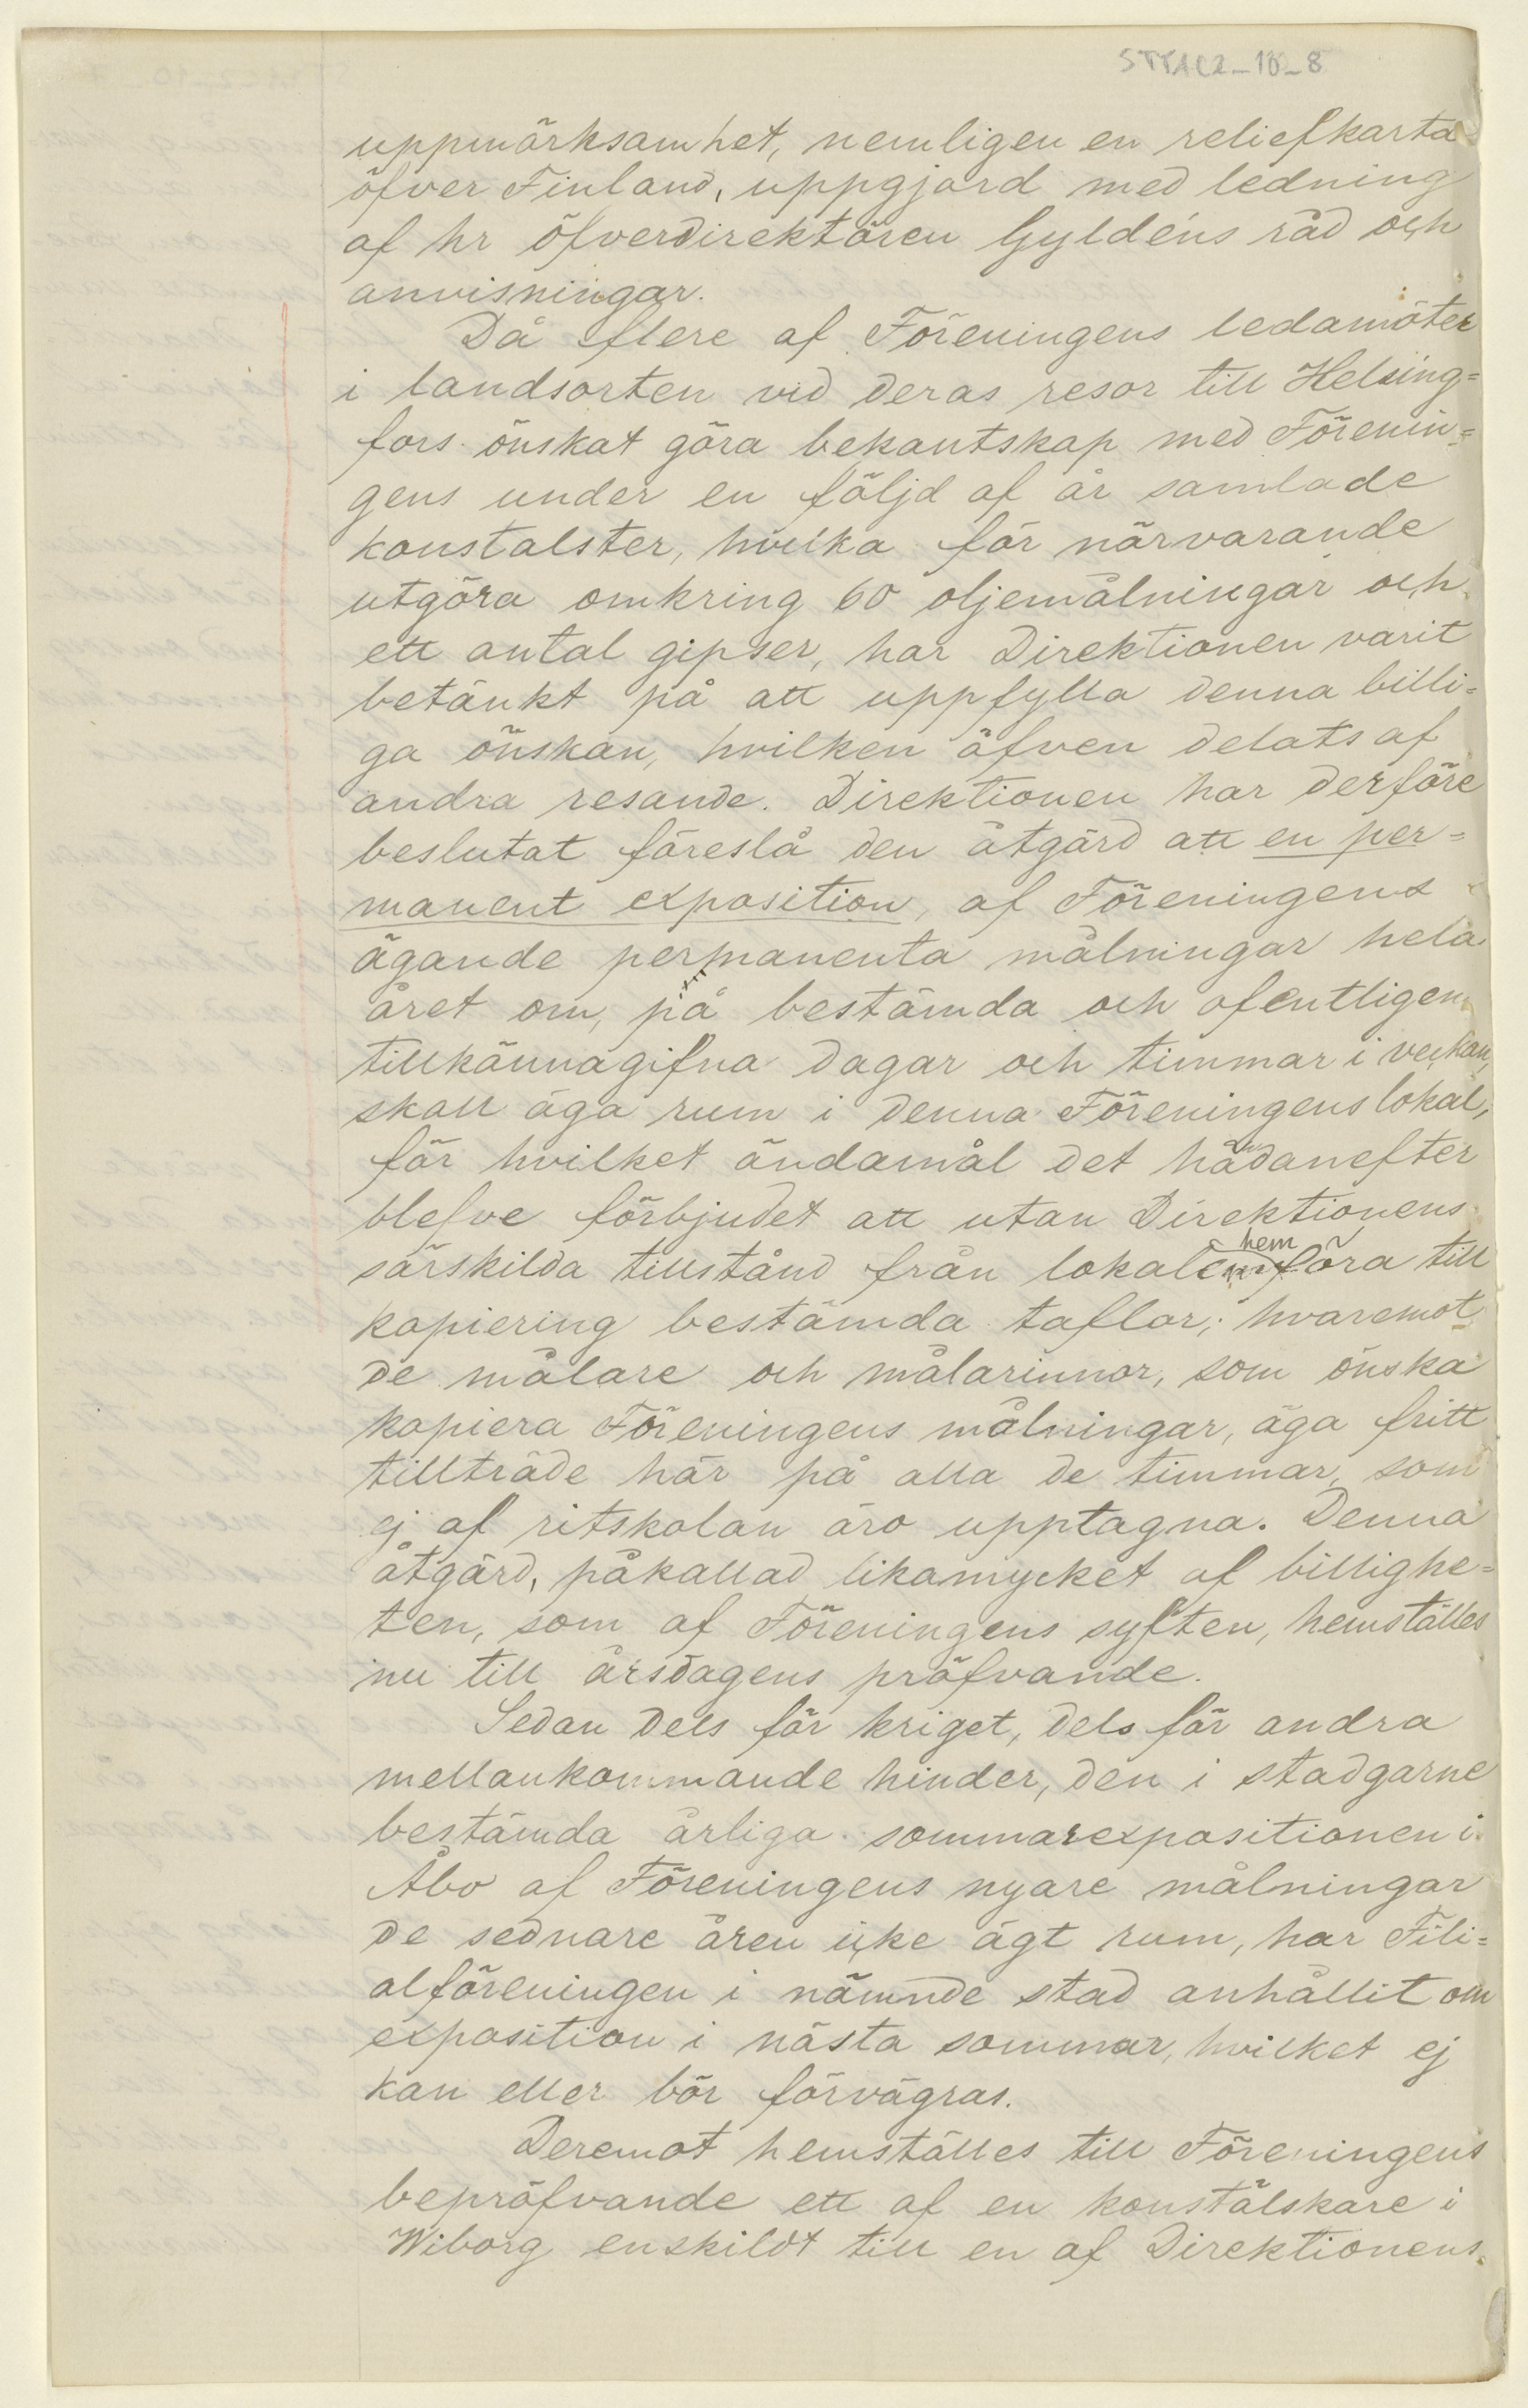 STYAC2_10_8
uppmärksamhet, nemligen en reliefkarta
öfver Finland, uppgjord med ledning
af hr öfverdirektören Gyldéns råd och
anvisningar.
Då flere af Föreningens ledamöter
i landsorten vid deras resor till Helsing=
fors önskat göra bekantskap med Förenin=
gens under en följd af år samlade
konstalster, hvilka för närvarande
utgöra omkring 60 oljemålningar och
ett antal gipser, har Direktionen varit
betänkt på att uppfylla denna billi=
ga önskan, hvilken äfven delats af
andra resande. Direktionen har derföre
beslutat föreslå den åtgärd att en per=
manent exposition, af Föreningens
ägande permanenta målningar hela
året om, på bestämda och ofentligen
tillkännagifna dagar och timmar i veckan,
skall äga rum i denna Föreningens lokal,
för hvilket ändamål det hädanefter
blefve förbjudet att utan Direktionens
särskilda tillstånd från lokalen hemföra till
kopiering bestämda taflor; hvaremot
de målare och målarinnor, som önska
kopiera Föreningens målningar, äga fritt
tillträde här på alla de timmar, som
ej af ritskolan äro upptagna. Denna
åtgärd, påkallad likamycket af billighe=
ten, som af Föreningens syften, hemställes
nu till årsdagens pröfvande.
Sedan dels för kriget, dels för andra
mellankommande hinder, den i stadgarne
bestämda årliga sommarexpositionen i
Åbo af Föreningens nyare målningar
de sednare åren icke ägt rum, har Fili=
alföreningen i nämnde stad anhållit om
exposition i nästa sommar, hvilket ej
kan eller bör förvägras.
Deremot hemställes till Föreningens
bepröfvande ett af en konstälskare i
Wiborg enskildt till en af Direktionens